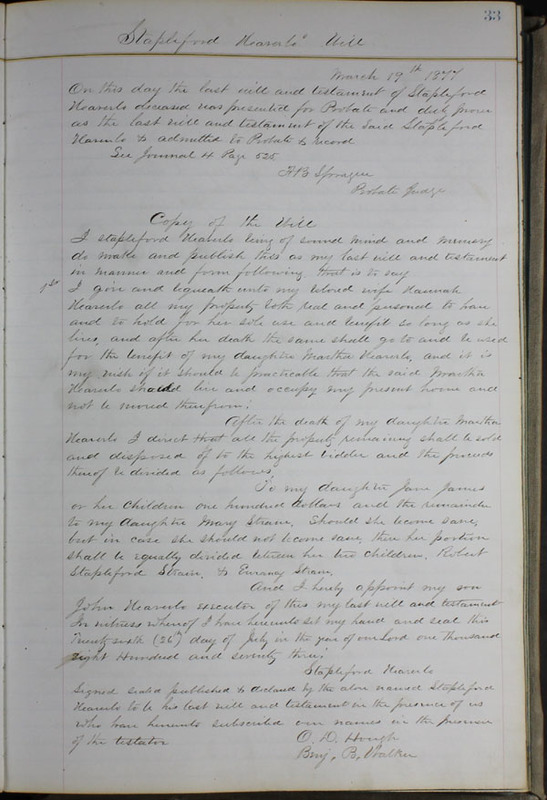 33
Stapleford Hearals Will
March 19th 1877
On this day the last will and testament of Stapleford
deceased was presented for Probate and duly proven
as the last will and testament of the said Stapleford
& admitted to Probate & record
See Journal 4 Page 525
Sprague
Probate Judge
Copy of the Will
I stapleford being of sound mind and memory
do make and publish this as my last will and testament
in manner and form following that is to say
1st I give and bequeath unto my beloved wife Hannah
all my property both real and personal to have
and to hold for her sole use and benefit so long as she
lives, and after her death the same shall go to and be used
for the benefit of my daughter Martha and it is
my wish if it should be practicable that the said Martha
should live and occupy my present home and
not be moved therefrom.
After the death of my daughter Martha
I direct that all the property remaining shall be sold
and disposed of to the highest bidder and the proceeds
thereof be divided as follows,
To my daughter Jane James
or her children one hundred dollars and the remainder
to my daughter Mary Strain. Should she become sane,
but in case she should not become sane, then her portion
shall be equally divided between her two children, Robert
Stapleford Strain, & Strain,
And I hereby appoint my son
John executor of this my last will and testament
In witness whereof I have hereunto set my hand and seal this
Twenty sixth (26th) day of July in the year of our Lord one thousand
eight Hundred and seventy three.
Stapleford
Signed seald published & declared by the above named Stapleford
to be his last will and testament in the presence of us
who have hereunto subscribed our names in the presence
of the testator
O. D. Hough
Benj. B. Walker